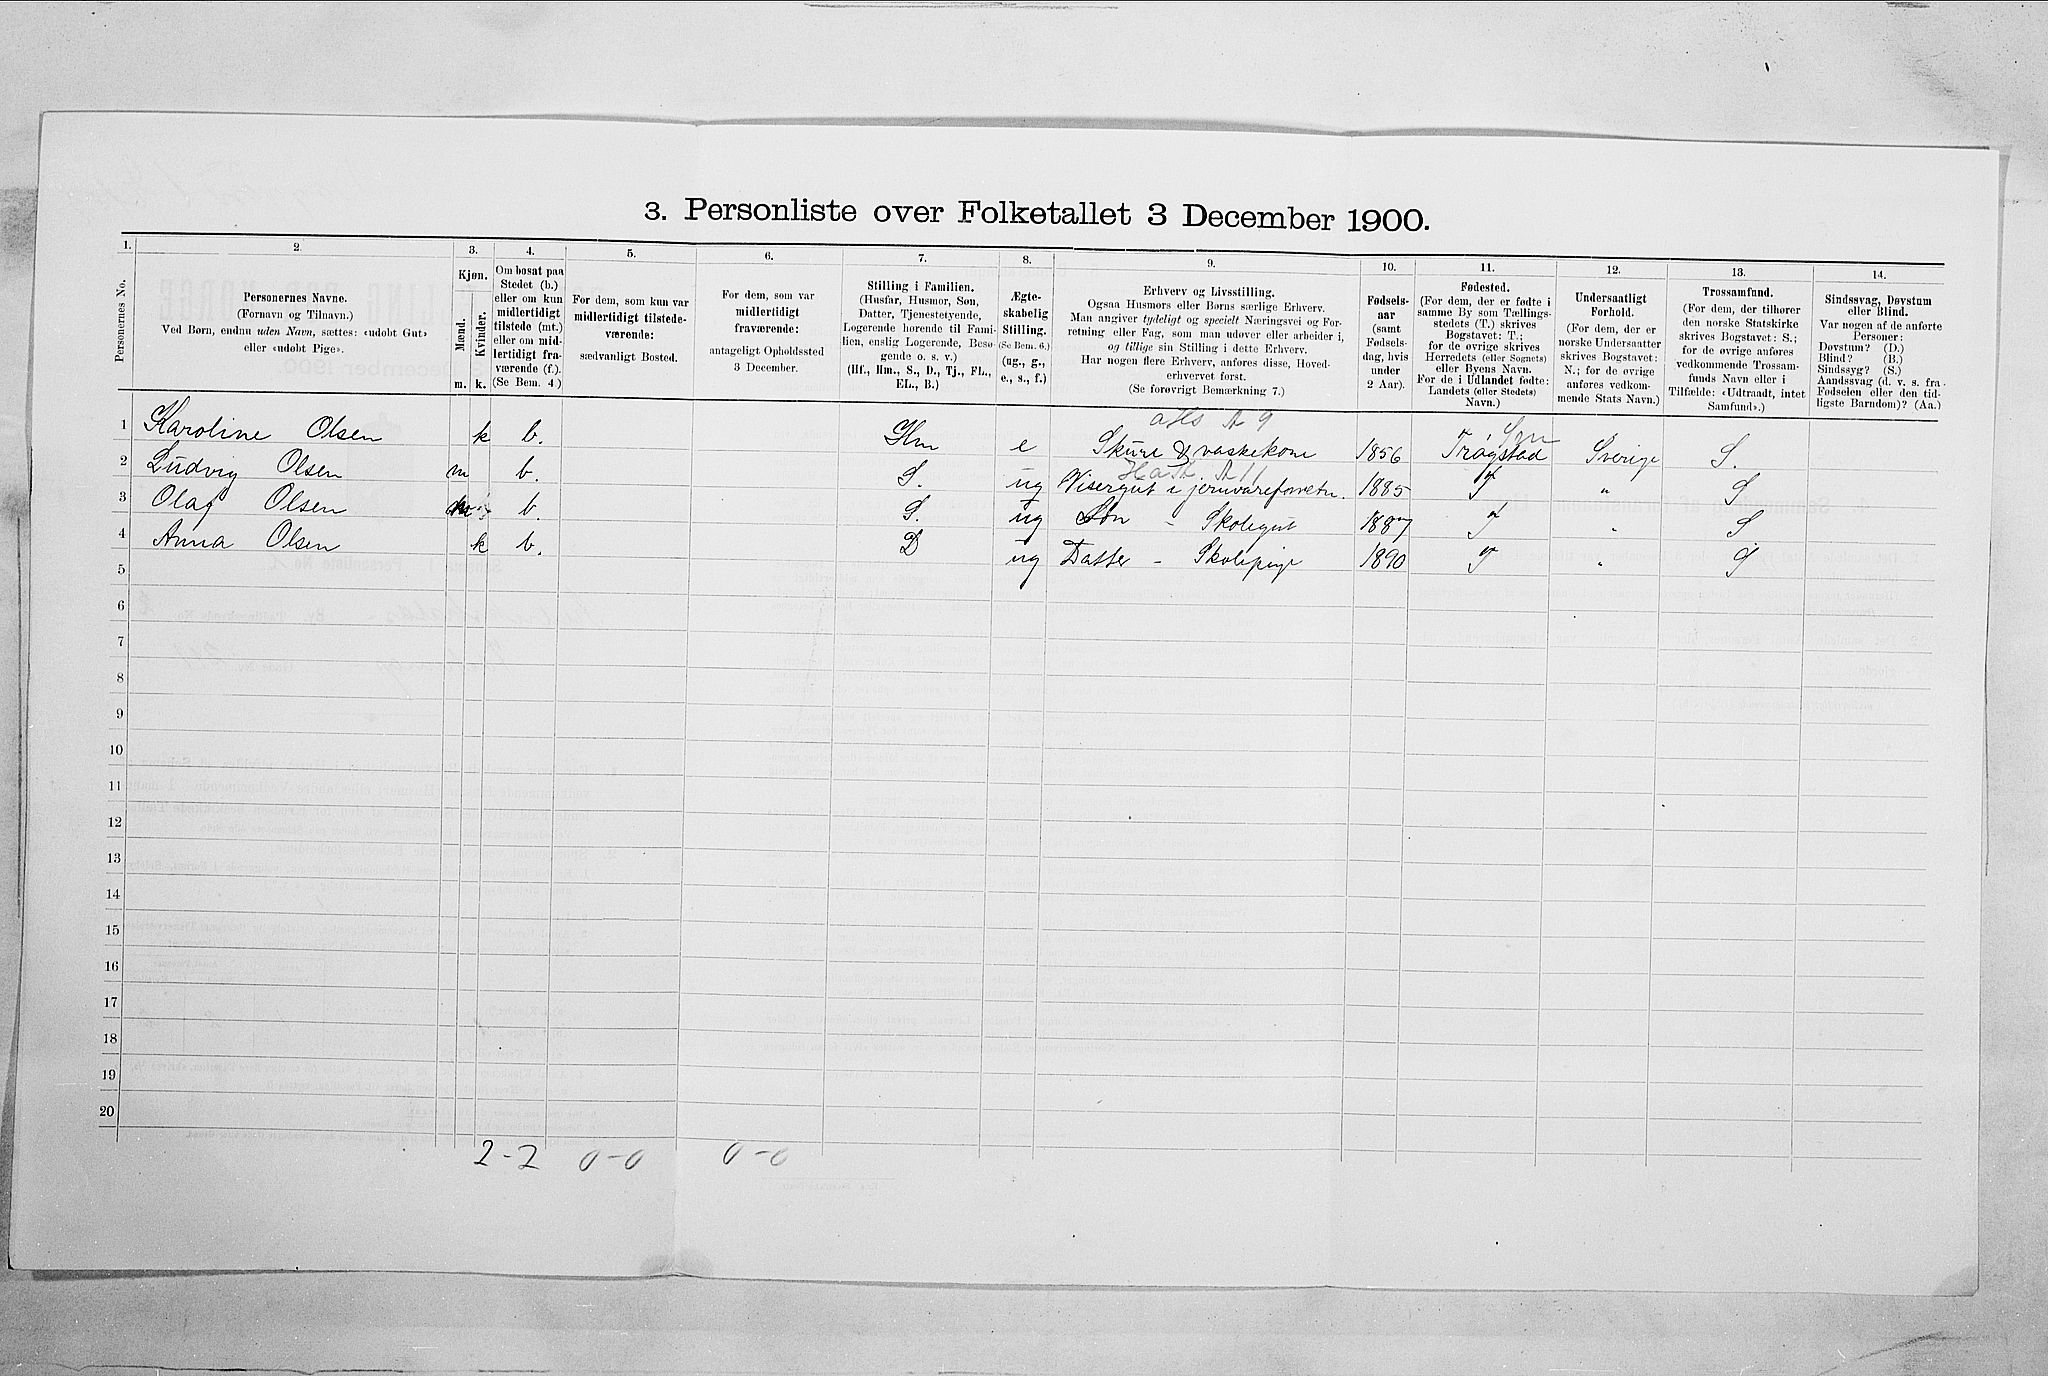 3. Personliste over Folketallet 3 December 1900.
1. 2. 3. 4. 5. 6. 7. 8. 9. 10. 11. 12. 13. 14.
Personernes No.
Personernes Navne.
(Fornavn og Tilnavn.)
Ved Børn, endnu uden Navn, sættes: «udøbt Gut»
eller «udøbt Pige».
Kjøn.
Mænd.
Kvinder.
m. k.
Om bosat paa
Stedet (b.)
eller om kun
midlertidigt
tilstede (mt.)
eller om mid-
lertidigt fra-
værende (f.).
(Se Bem. 4.)
For dem, som kun var
midlertidigt tilstede-
værende:
sædvanligt Bosted.
For dem, som var
midlertidigt
fraværende:
antageligt Opholdssted
3 December.
Stilling i Familien.
(Husfar, Husmor, Søn,
Datter, Tjenestetyende,
Logerende hørende til Fami-
lien, enslig Logerende, Besø-
gende o. s. v.)
(Hf., Hm., S., D., Tj., FL.,
EL., B.)
Ægte-
skabelig
Stilling.
(Se Bem. 6.)
(ug., g.,
e., s., f.)
Erhverv og Livsstilling.
Ogsaa Husmors eller Børns særlige Erhverv.
Man angiver tydeligt og specielt Næringsvei og For-
retning eller Fag, som man udøver eller arbeider i,
og tillige sin Stilling i dette Erhverv.
Har nogen flere Erhverv, anføres disse, Hoved-
erhvervet først.
(Se forøvrigt Bemærkning 7.)
Fødsels-
aar
(samt
Fødsels-
dag, hvis
under
2 Aar).
Fødested.
(For dem, der er fødte i
samme By som Tællings-
stedets (T.) skrives
Bogstavet: T.;
for de øvrige skrives
Herredets (eller Sognets)
eller Byens Navn.
For de i Udlandet fødte:
Landets (eller Stedets)
Navn.)
Undersaatligt
Forhold.
(For dem, der er
norske Undersaatter
skrives Bogstavet:
N.; for de øvrige
anføres vedkom-
mende Stats Navn.)
Trossamfund.
(For dem, der tilhører
den norske Statskirke
skrives Bogstavet: S.;
for de øvrige anføres
vedkommende Trossam-
funds Navn eller i
Tilfælde: «Udtraadt, intet
Samfund».)
Sindssvag, Døvstum
eller Blind.
Var nogen af de anførte
Personer:
Døvstum? (D.)
Blind? (B.)
Sindssyg? (S.)
Aandssvag (d. v. s. fra
Fødselen eller den tid-
ligste Barndom)? (Aa.)
1 Karoline Olsen k b. Hm e Skure & vaskekone 1856 Trøgstad Sverige S.
2 Ludvig Olsen m b. S. ug Visergut i jernvareforretn. 1885 T " S
3 Olaf Olsen b. S. ug Søn - Skolegut 1887 T " S
4 Anna Olsen k b. D ug Datter - Skolepige 1890 T " S
5
6
7
8
9
10
11
12
13
14
15
16
17
18
19
20
2-2 0-0 0-0